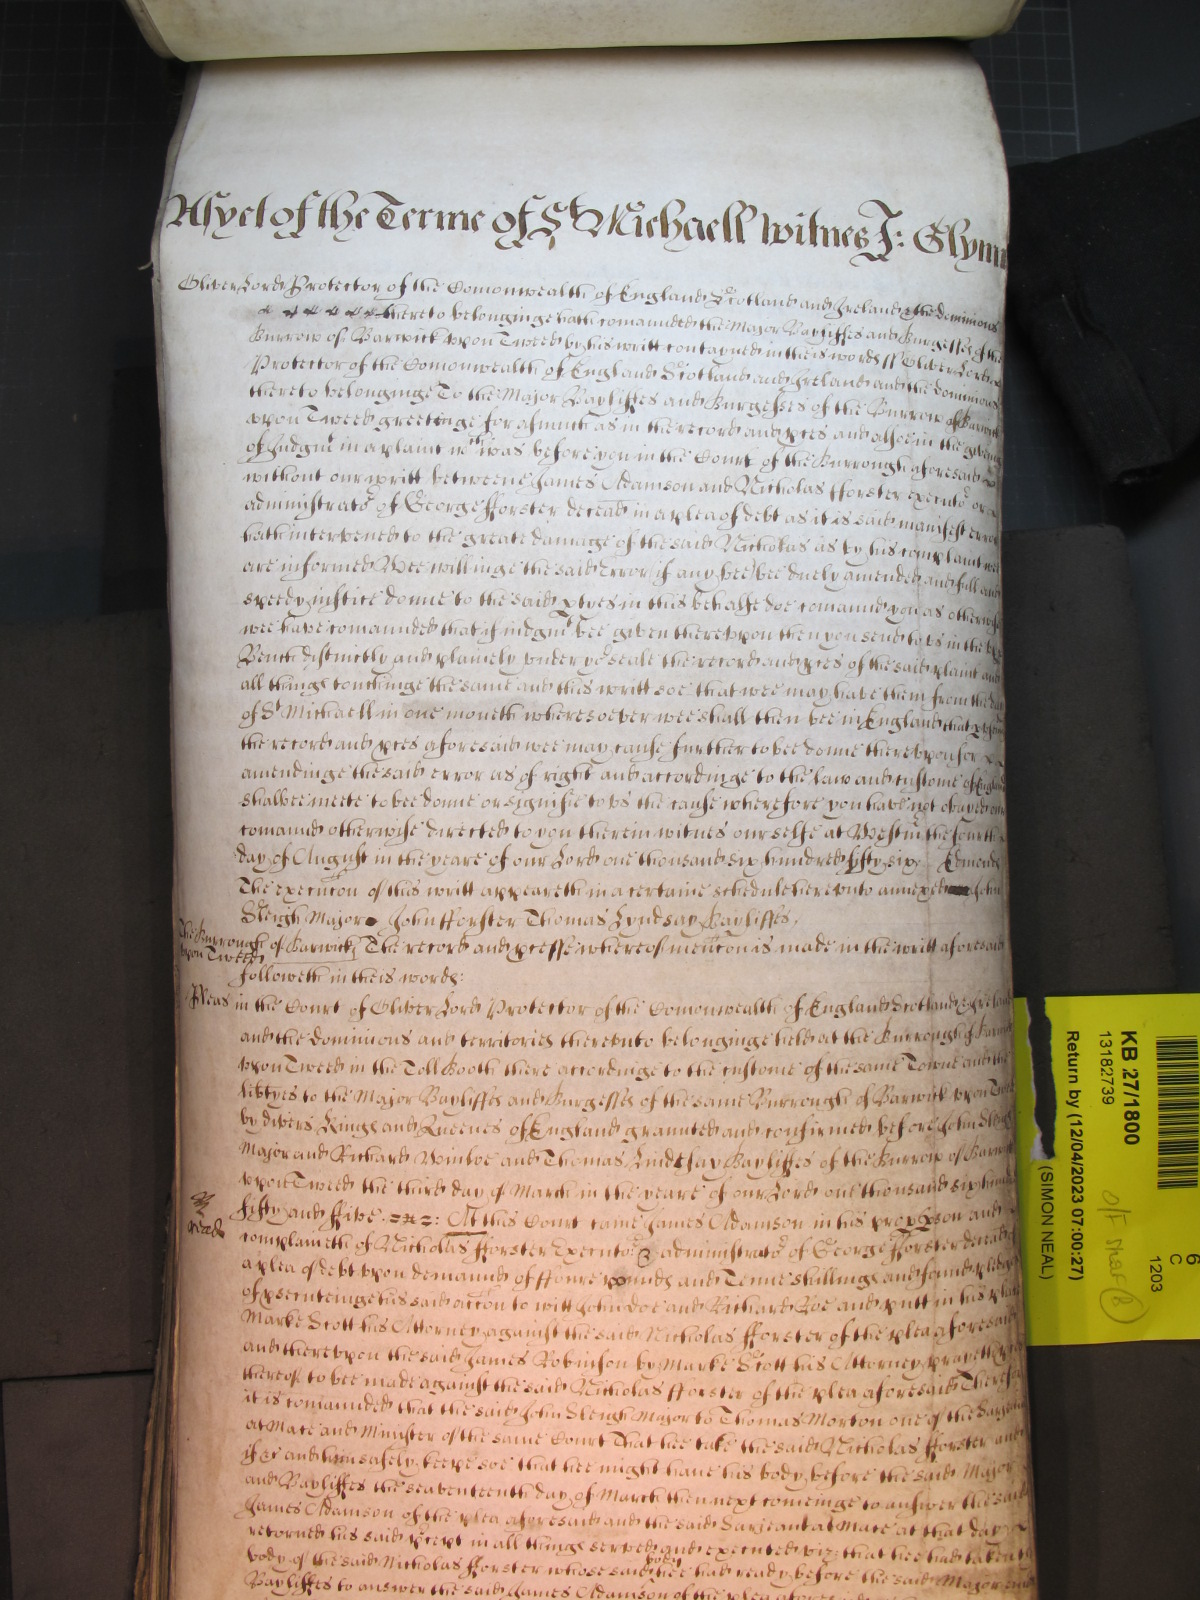 As yet of the Terme of St Michaell witnes J: Glynn
Oliver Lord Protector of the Comonwealth of England Scotland and Ireland & the dominions
thereto belonginge hath comannded the Major Bayliffes and Burgesses of the
Burrow of Barwick upon Tweed by his writt contayned in theis words ss Oliver Lord
Protector of the Comonwealth of England Scotland and Ireland and the dominions
thereto belonginge To the Major Bayliffes and Burgesses of the Burrow of Barwick
upon Tweed greetinge for asmuch as in the record and pces and alsoe in the giving
of Judgmt in a plaint wch was before you in the Court of the Burrough aforesaid
without our writt betweene James Adamson and Nicholas fforster executor or
administrator of George fforster deceased in a plea of debt as it is said manifest error
hath intervened to the greate damage of the said Nicholas as by his complaint wee
are informed Wee willinge the said Error if any bee bee duely amended and full and
speedy justice donne to the said ptyes in this behalfe doe comannd you as otherwise
wee have comannded that if judgmt bee given thereupon then you send to us in the
Bench distinctly and plainely under yor seale the record and pces of the said plaint and
all things touchinge the same and this writt soe that wee may have them from the day
of St Michaell in one moneth wheresoever wee shall then bee in England that
the record and pces aforesaid wee may cause further to bee donne thereupon for
amendinge the said error as of right and accordinge to the law and custome of England
shalbee meete to bee donne or signifie to us the cause wherefore you have not obeyed our
comannd otherwise directed to you therein witnes ourselfe at Westm the fourth
day of August in the yeare of our Lord one thousand six hundred fifty six Edmonds
The execucon of this writt appeareth in a certaine schedule hereunto annexed John
Sleigh Major John fforster Thomas Lyndsay Bayliffes.
The Burrough of Barwick The record and pcesse whereof mencon is made in the writt aforesaid
upon Tweed
followeth in theis words:
Pleas in the Court of Oliver Lord Protector of the Comonwealth of England Scotland & Ireland
and the dominions and territories thereunto belonginge held at the Burrough of Barwick
upon Tweed in the Toll Booth there accordinge to the custome of the same Towne and the
libtyes to the Major Bayliffes and Burgesses of the same Burrough of Barwick upon Tweed
by divers Kings and Queenes of England grannted and confirmed before John Sleigh
Major and Richard Winloe and Thomas Lindsay Bayliffes of the Burrow of Barwick
upon Tweed the third day of March in the yeare of our Lord one thousand six hundred
fifty and ffive. At this Court came James Adamson in his prop pson and
complaineth of Nicholas fforster Executor administrator of George fforster deceased
a plea of debt upon demannd of ffoure pounds and Tenne shillings and found pledges
of psecuteinge his said accon to witt John Doe and Richard Roe and putt in his place
Marke Scott his Attorney against the said Nicholas fforster of the plea aforesaid
and thereupon the said James Robinson by Marke Scott his Attorney prayeth
thereof to bee made against the said Nicholas fforster of the plea aforesaid Therefore
it is comannded that the said John Sleigh Major to Thomas Morton one of the Sarjeants
at Mace and Minister of the same Court That hee take the said Nicholas fforster and
if &c and him safely keepe soe that hee might have his body before the said Major
and Bayliffes the seaventeenth day of March then next comeinge to answer the said
James Adamson of the plea aforesaid and the said Sarjeant at Mace at that day
retorned his said pcept in all things served and executed viz: that hee had taken the
body of the said Nicholas fforster whose said body hee had ready before the said Major and
Bayliffes to answer the said James Adamson of the plea aforesaid
KB 27/1800
13182739
Return by (12/04/2023 07:00:27)
(SIMON NEAL)
6
C
1203